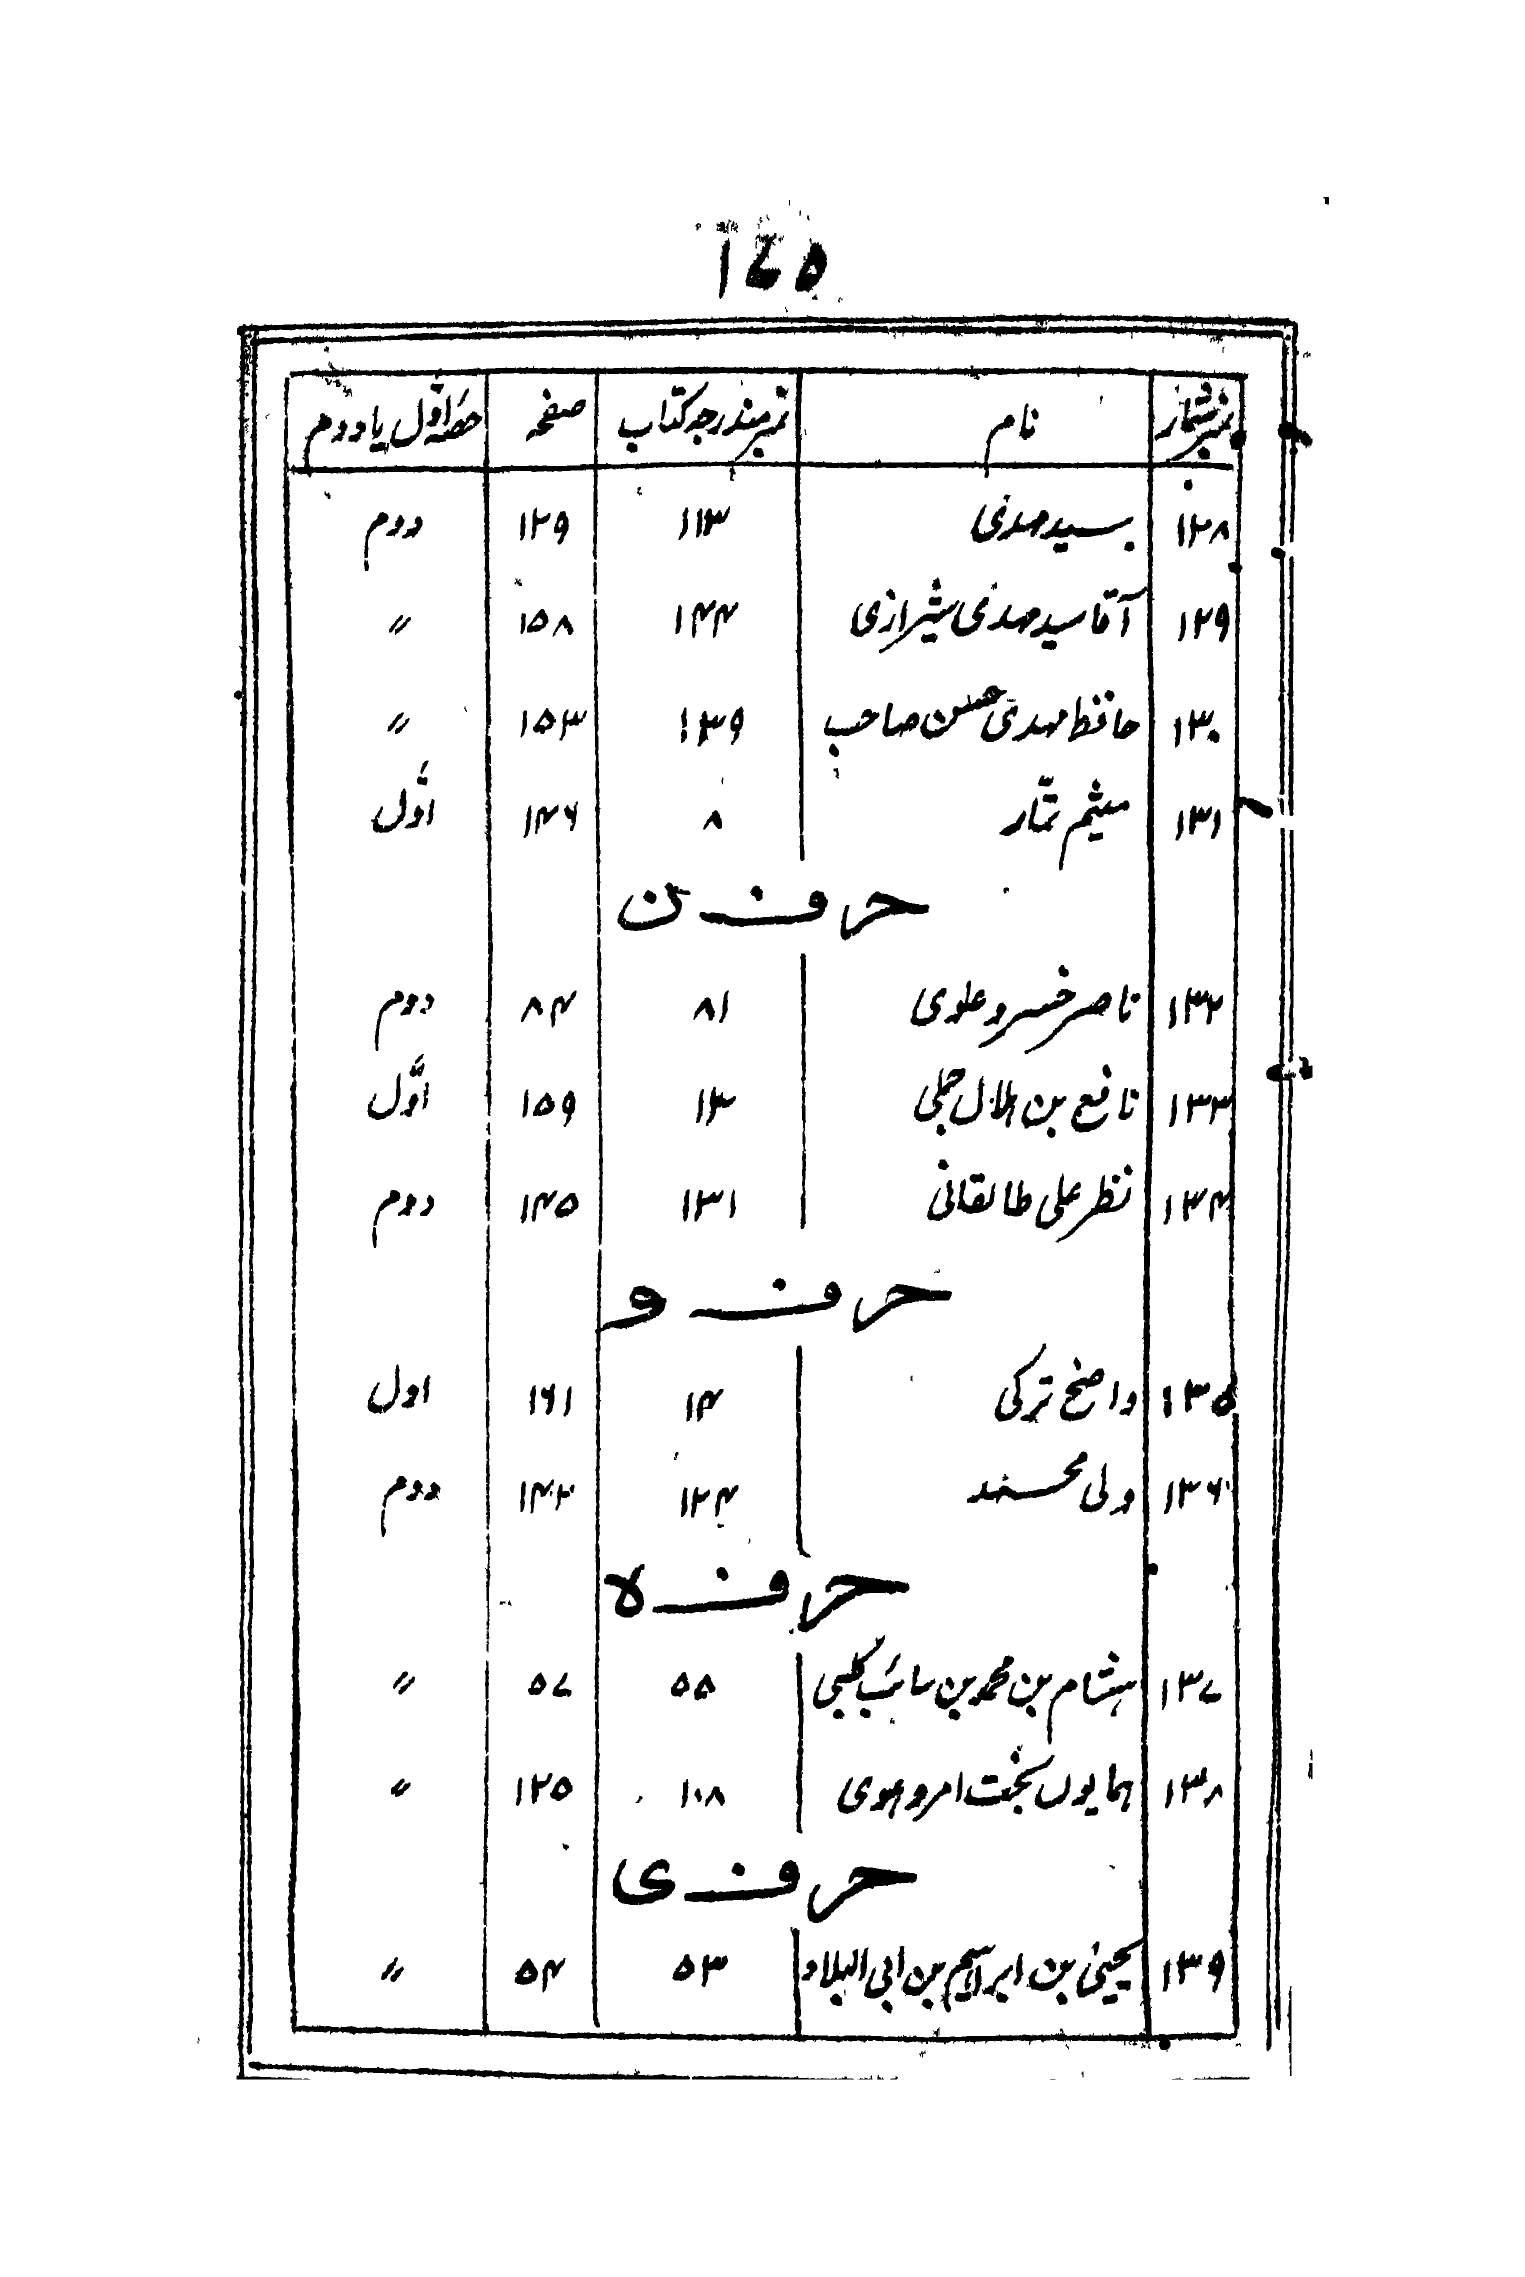 ۱۷۵
نمبر شمار نام نمبر مندرجہ کتاب صفحہ حصہ اوّل یا دوم
۱۲۸ سید مہدی ۱۱۳ ۱۲۹ دوم
۱۲۹ آقا سید مہدی شیرازی ۱۴۴ ۱۵۸ 〃
۱۳۰ حافظ مہدی حسن صاحب ۱۳۹ ۱۵۳ 〃
۱۳۱ میثم تمّار ۸ ۱۴۶ اوّل
حرف ن
۱۳۲ ناصر خسرو علوی ۸۱ ۸۴ دوم
۱۳۳ نافع بن ہلال جملی ۱۳ ۱۵۹ اوّل
۱۳۴ نظر علی طالقانی ۱۳۱ ۱۴۵ دوم
حرف و
۱۳۵ واضح ترکی ۱۴ ۱۶۱ اول
۱۳۶ ولی محمد ۱۲۴ ۱۴۲ دوم
حرف ہ
۱۳۷ ہشام بن محمد بن سائب کلبی ۵۵ ۵۷ 〃
۱۳۸ ہمایوں بخت امروہوی ۱۰۸ ۱۲۵ 〃
حرف ی
۱۳۹ یحییٰ بن ابراہیم بن ابی البلاد ۵۳ ۵۴ 〃